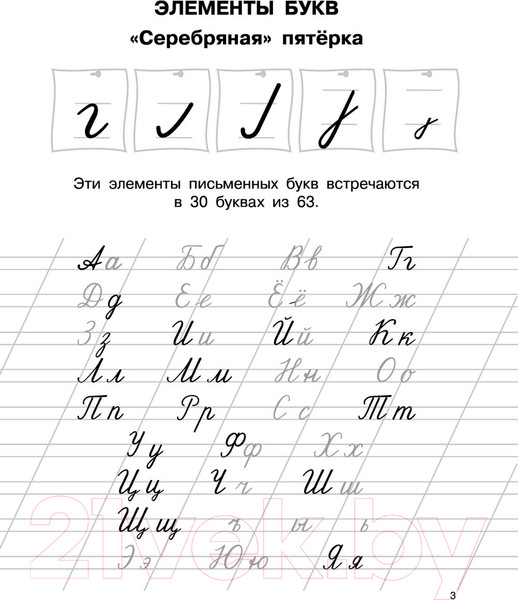 ЭЛЕМЕНТЫ БУКВ
«Серебряная» пятёрка
Эти элементы письменных букв встречаются
в 30 буквах из 63.
Аа Бб Вв Гг
Дд Ее Ёё Жж
Зз Ии Йй Кк
Лл Мм Нн Оо
Пп Рр Сс Тт
Уу Фф Хх
Цц Чч Шш
Щщ ъ ы ь
Ээ Юю Яя
21vek.by
3